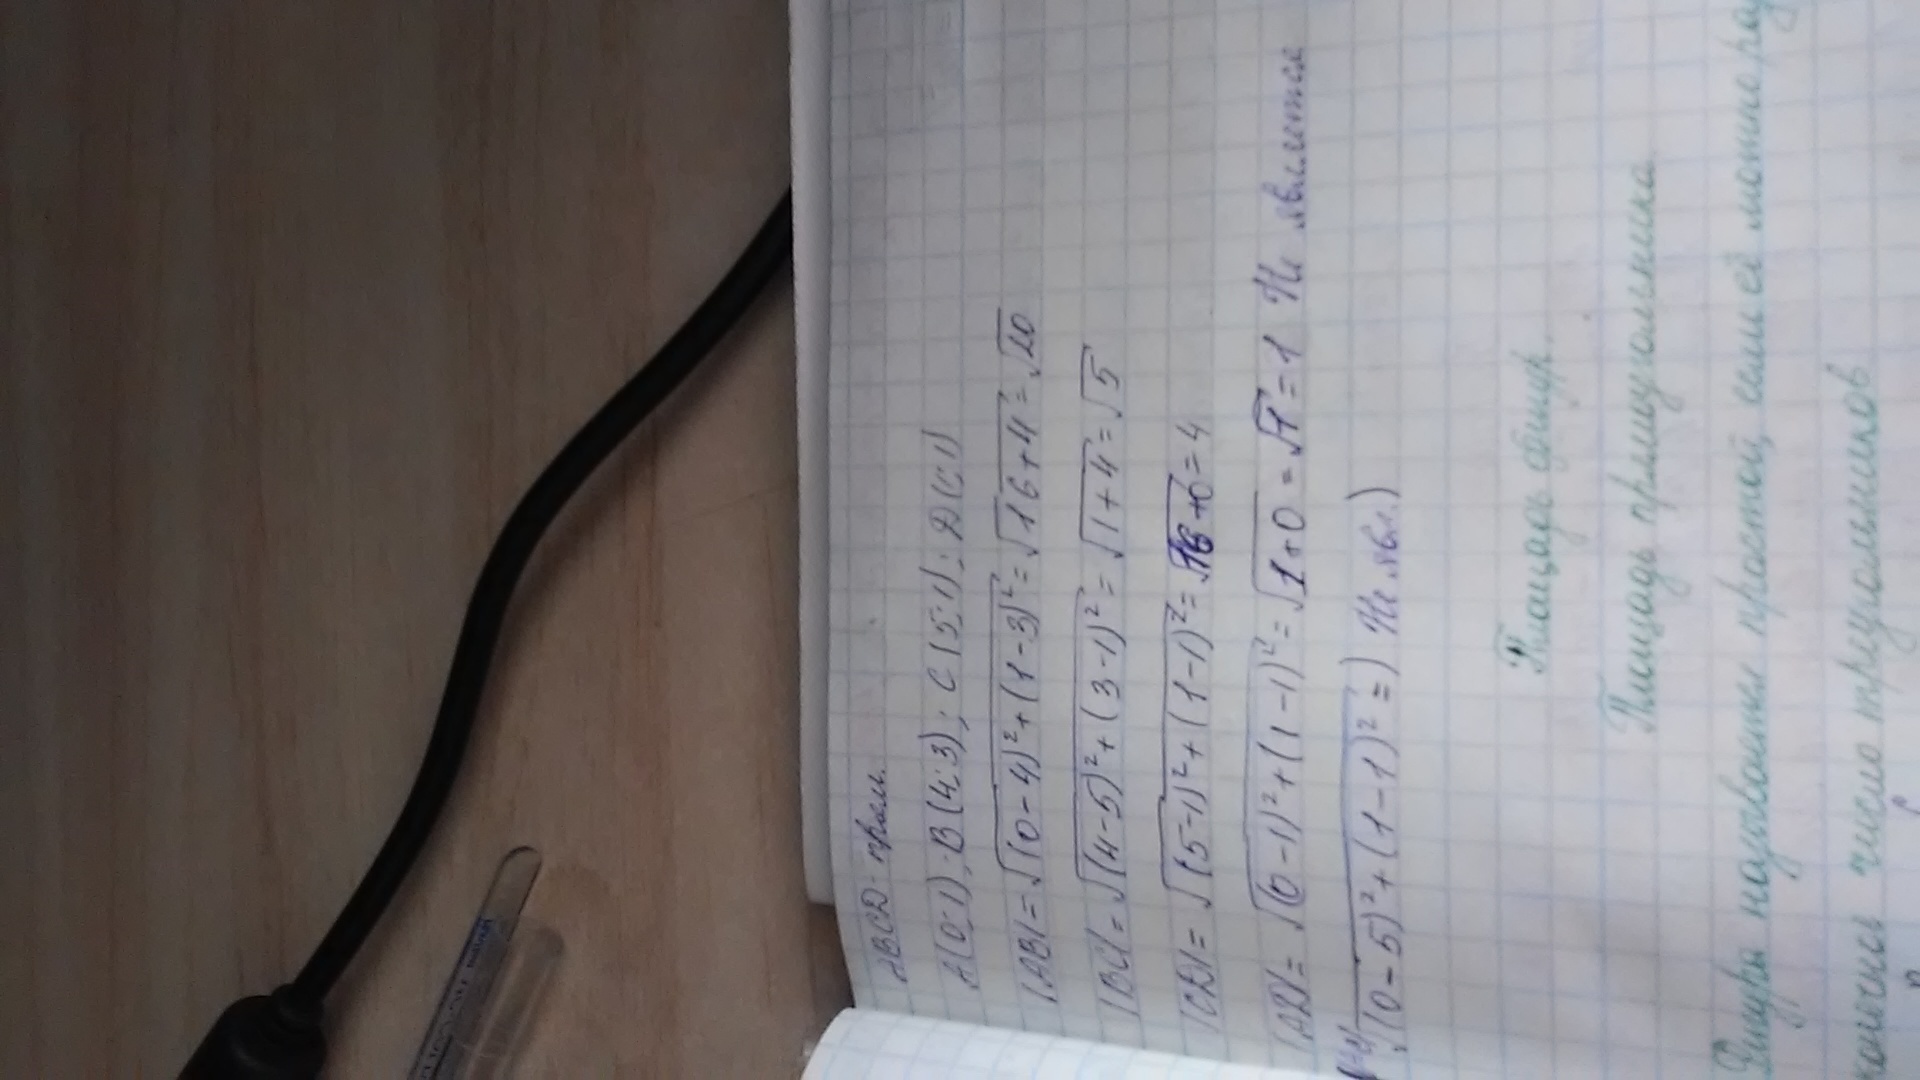 ABCD - прям.
A(0;1); B(4;3); C(5;1); D(1;1)
|AB| = √(0-4)²+(1-3)² = √16+4 = √20
|BC| = √(4-5)²+(3-1)² = √1+4 = √5
|CD| = √(5-1)²+(1-1)² = √16+0 = 4
|AD| = √(0-1)²+(1-1)² = √1+0 = √1 = 1 Не является
√(0-5)²+(1-1)² =) Не явл.)
Площадь фигур.
Площадь прямоугольника
Фигура называется простой, если её можно
число треугольников